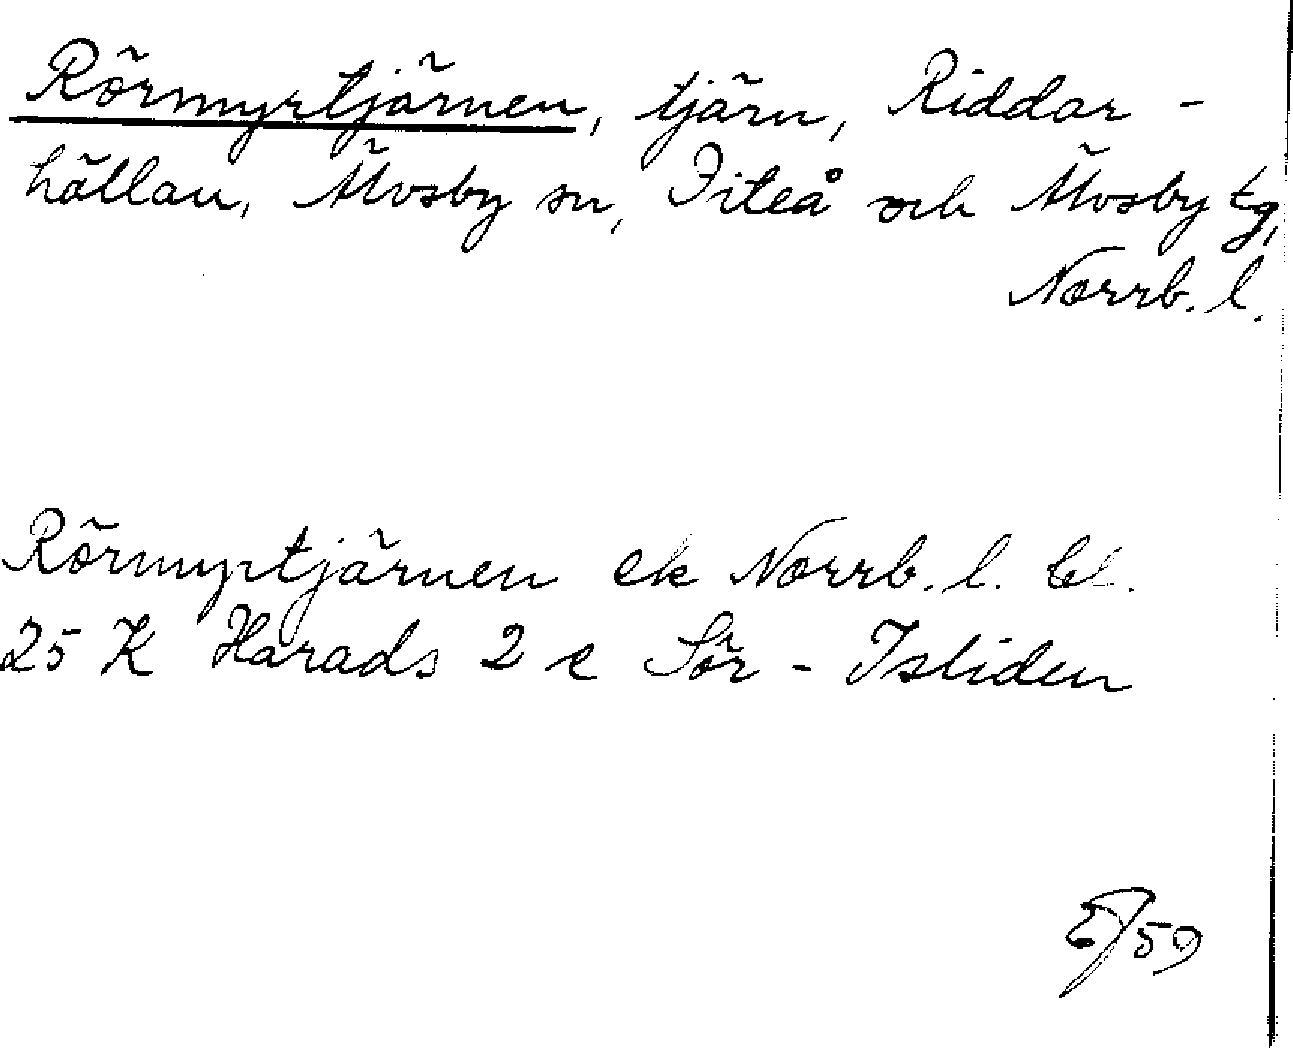 Rörmyrtjärnen, tjärn, Riddar-
hällan, Älvsby sn, Piteå och Älvsby tg,
Norrb. l.
Rörmyrtjärnen ek Norrb. l. bl.
25 K Harads 2 e Sör-Isliden
/59